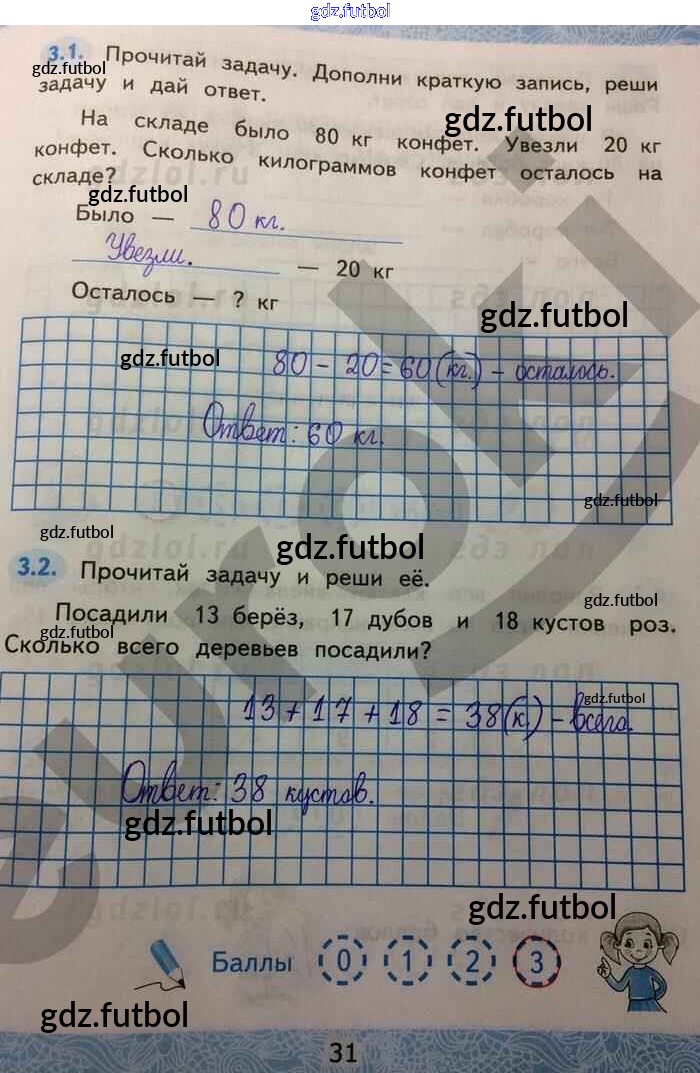 gdz.futbol
3.1. Прочитай задачу. Дополни краткую запись, реши
gdz.futbol
задачу и дай ответ.
gdz.futbol
На складе было 80 кг конфет. Увезли 20 кг
конфет. Сколько килограммов конфет осталось на
складе?
gdz.futbol
Было — 80 кг.
Увезли. — 20 кг
Осталось — ? кг
gdz.futbol
gdz.futbol
80 - 20 = 60 (кг.) - осталось.
Ответ: 60 кг.
gdz.futbol
gdz.futbol
gdz.futbol
3.2. Прочитай задачу и реши её.
gdz.futbol
Посадили 13 берёз, 17 дубов и 18 кустов роз.
gdz.futbol
Сколько всего деревьев посадили?
gdz.futbol
13 + 17 + 18 = 38 (к.) - всего.
Ответ: 38 кустов.
gdz.futbol
gdz.futbol
Баллы 0 1 2 3
gdz.futbol
31
euroki